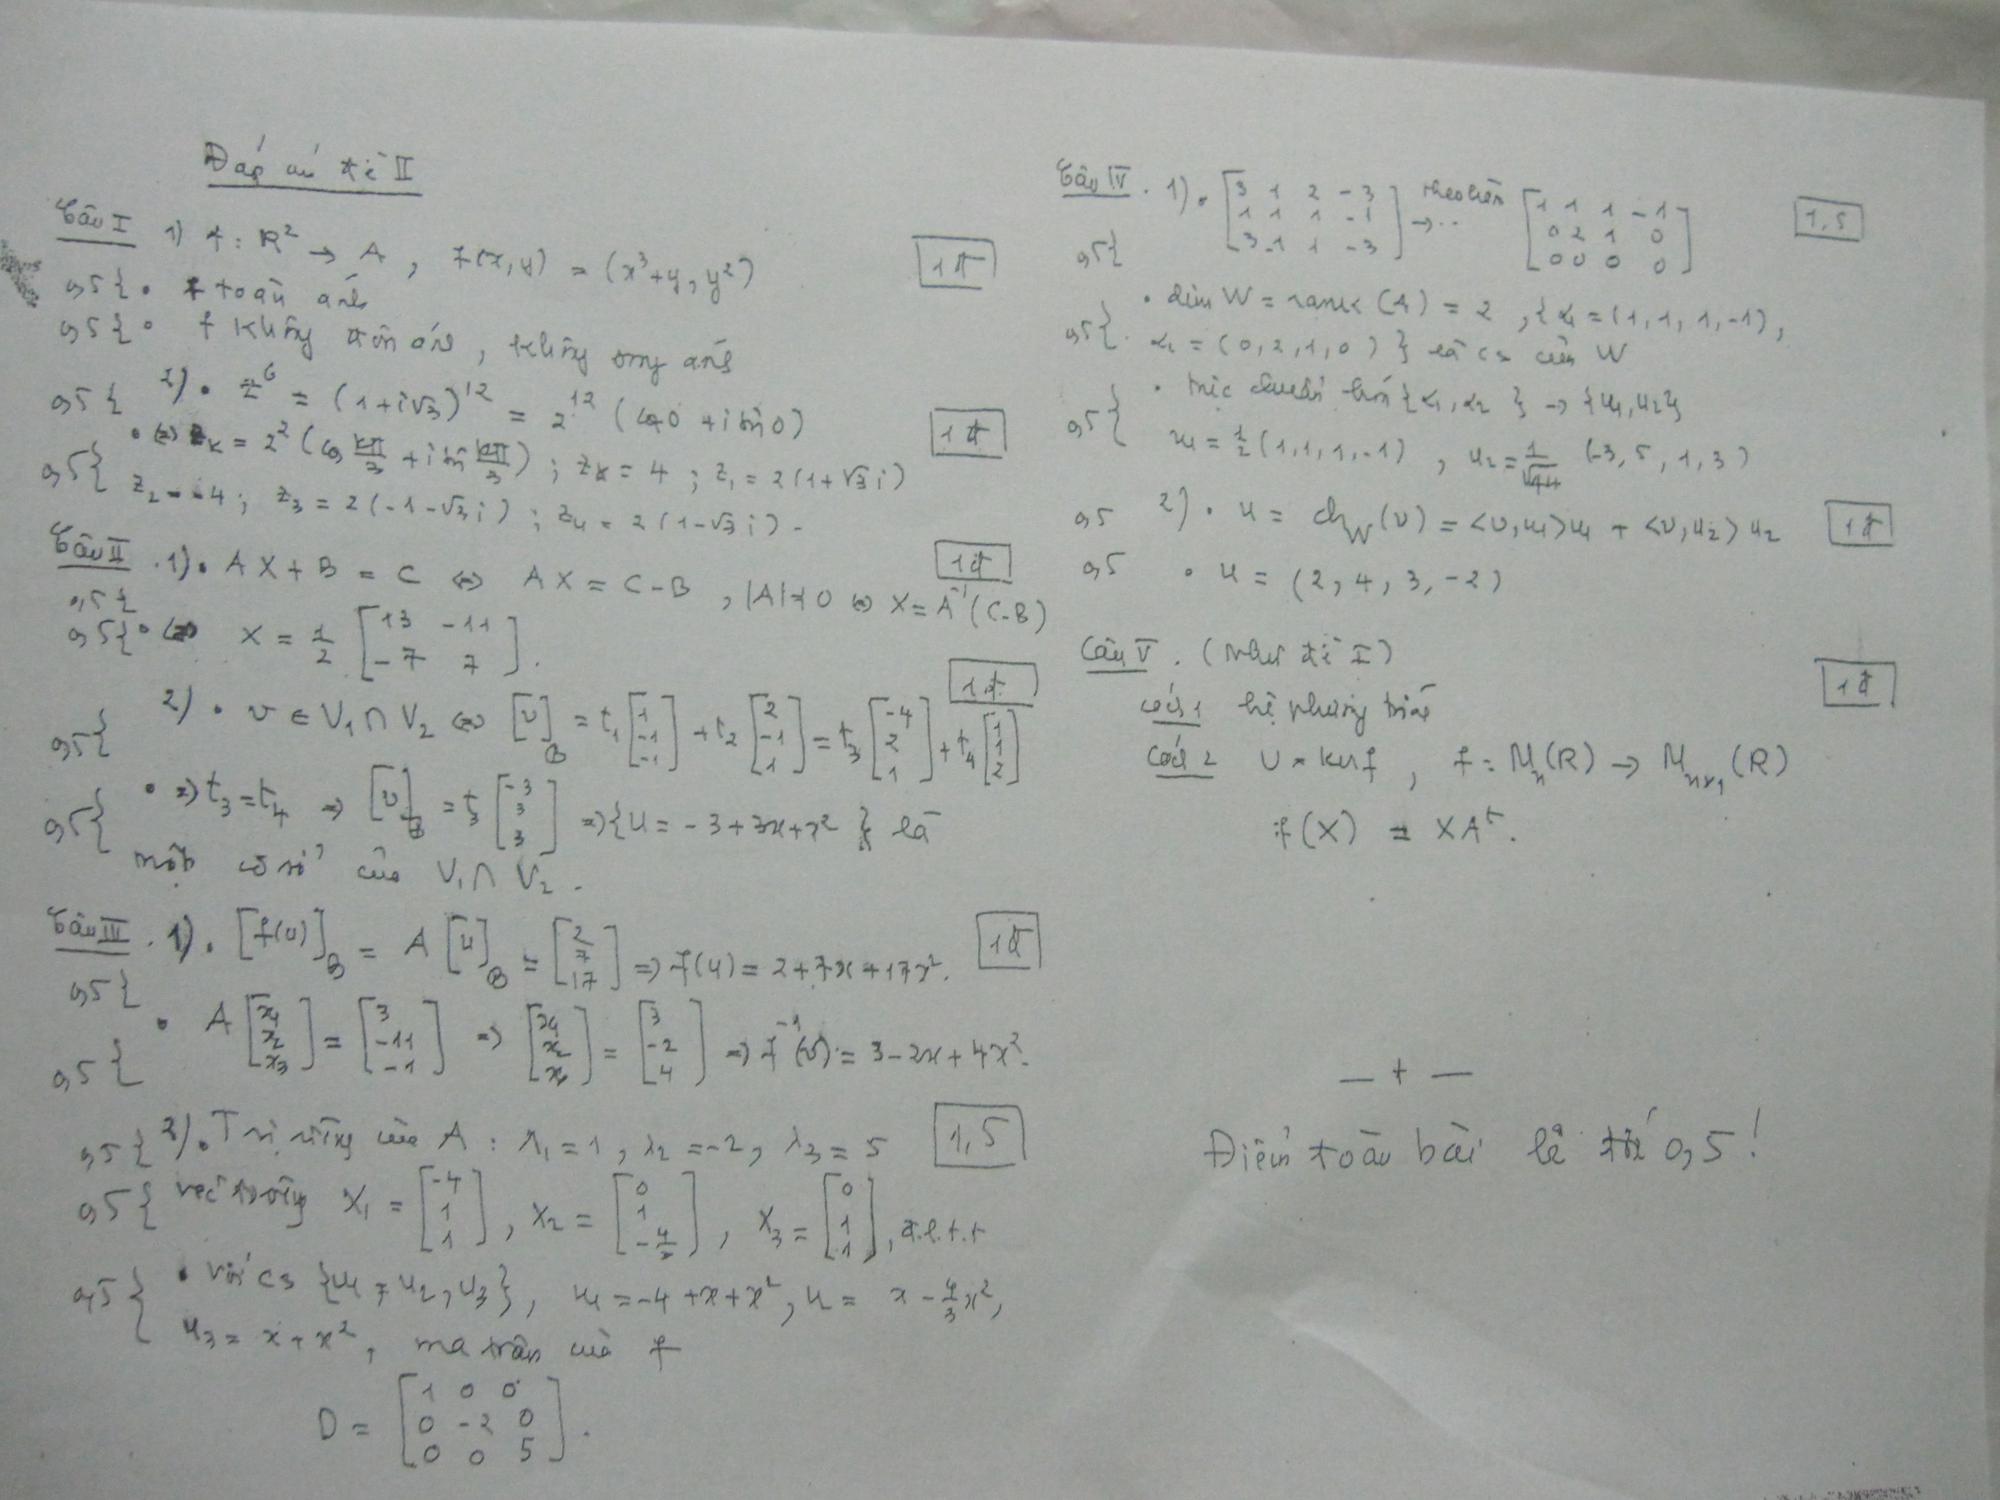 Đáp án đề II
Câu I 1) f: R² → A, f(x,y) = (x³+y, y²) 1đ
0,5{ • f toàn ánh
0,5{ • f không đơn ánh, không song ánh
0,5{ 2) • z⁶ = (1+i√3)¹² = 2¹² (cos0 + i sin0) 1đ
0,5{ • ⇔ z_k = 2² (cos kπ/3 + i sin kπ/3); z_k = 4; z₁ = 2(1+√3i)
z₂ = -4; z₃ = 2(-1-√3i); z₄ = 2(1-√3i).
Câu II. 1) • AX + B = C ⇔ AX = C-B, |A| ≠ 0 ⇔ X = A⁻¹(C-B) 1đ
0,5{
0,5{ • ⇔ X = 1/2 [13 -11; -7 7].
0,5{ 2) • v ∈ V₁ ∩ V₂ ⇔ [v]_B = t₁ [1; -1; -1] + t₂ [2; -1; 1] = t₃ [-4; 2; 1] + t₄ [1; 1; 2] 1đ
0,5{ • ⇒ t₃ = t₄ ⇒ [v]_B = t₃ [-3; 3; 3] ⇒ {u = -3+3x+x²} là
một cơ sở của V₁ ∩ V₂.
Câu III. 1) • [f(u)]_B = A [u]_B = [2; 7; 17] ⇒ f(u) = 2+7x+17x². 1đ
0,5{
0,5{ • A [x₁; x₂; x₃] = [3; -11; -1] ⇒ [x₁; x₂; x₃] = [3; -2; 4] ⇒ f⁻¹(v) = 3-2x+4x².
0,5{ 2) • Trị riêng của A: λ₁ = 1, λ₂ = -2, λ₃ = 5 1,5
0,5{ véctơ riêng X₁ = [-4; 1; 1], X₂ = [0; 1; -4/3], X₃ = [0; 1; 1], đ.l.t.t
0,5{ • với cs {u₁, u₂, u₃}, u₁ = -4+x+x², u = x - 4/3 x²,
u₃ = x+x², ma trận của f
D = [1 0 0; 0 -2 0; 0 0 5].
Câu IV. 1) • [3 1 2 -3; 1 1 1 -1; 3 -1 1 -3] → ... theo hàng [1 1 1 -1; 0 2 1 0; 0 0 0 0] 1,5
0,5{
• dim W = rank(A) = 2, {α₁ = (1,1,1,-1),
0,5{ α₂ = (0,2,1,0)} là cs của W
0,5{ • trực chuẩn hoá {α₁, α₂} → {u₁, u₂}
u₁ = 1/2 (1,1,1,-1), u₂ = 1/√44 (-3,5,1,3)
0,5 2) • u = ch_W(v) = <v,u₁>u₁ + <v,u₂>u₂ 1đ
0,5 • u = (2, 4, 3, -2)
Câu V. (Như đề I) 1đ
Cách 1 hệ phương trình
Cách 2 U = kerf, f: M_n(R) → M_{n×1}(R)
f(X) = XAᵗ.
— + —
Điểm toàn bài lẻ tới 0,5!